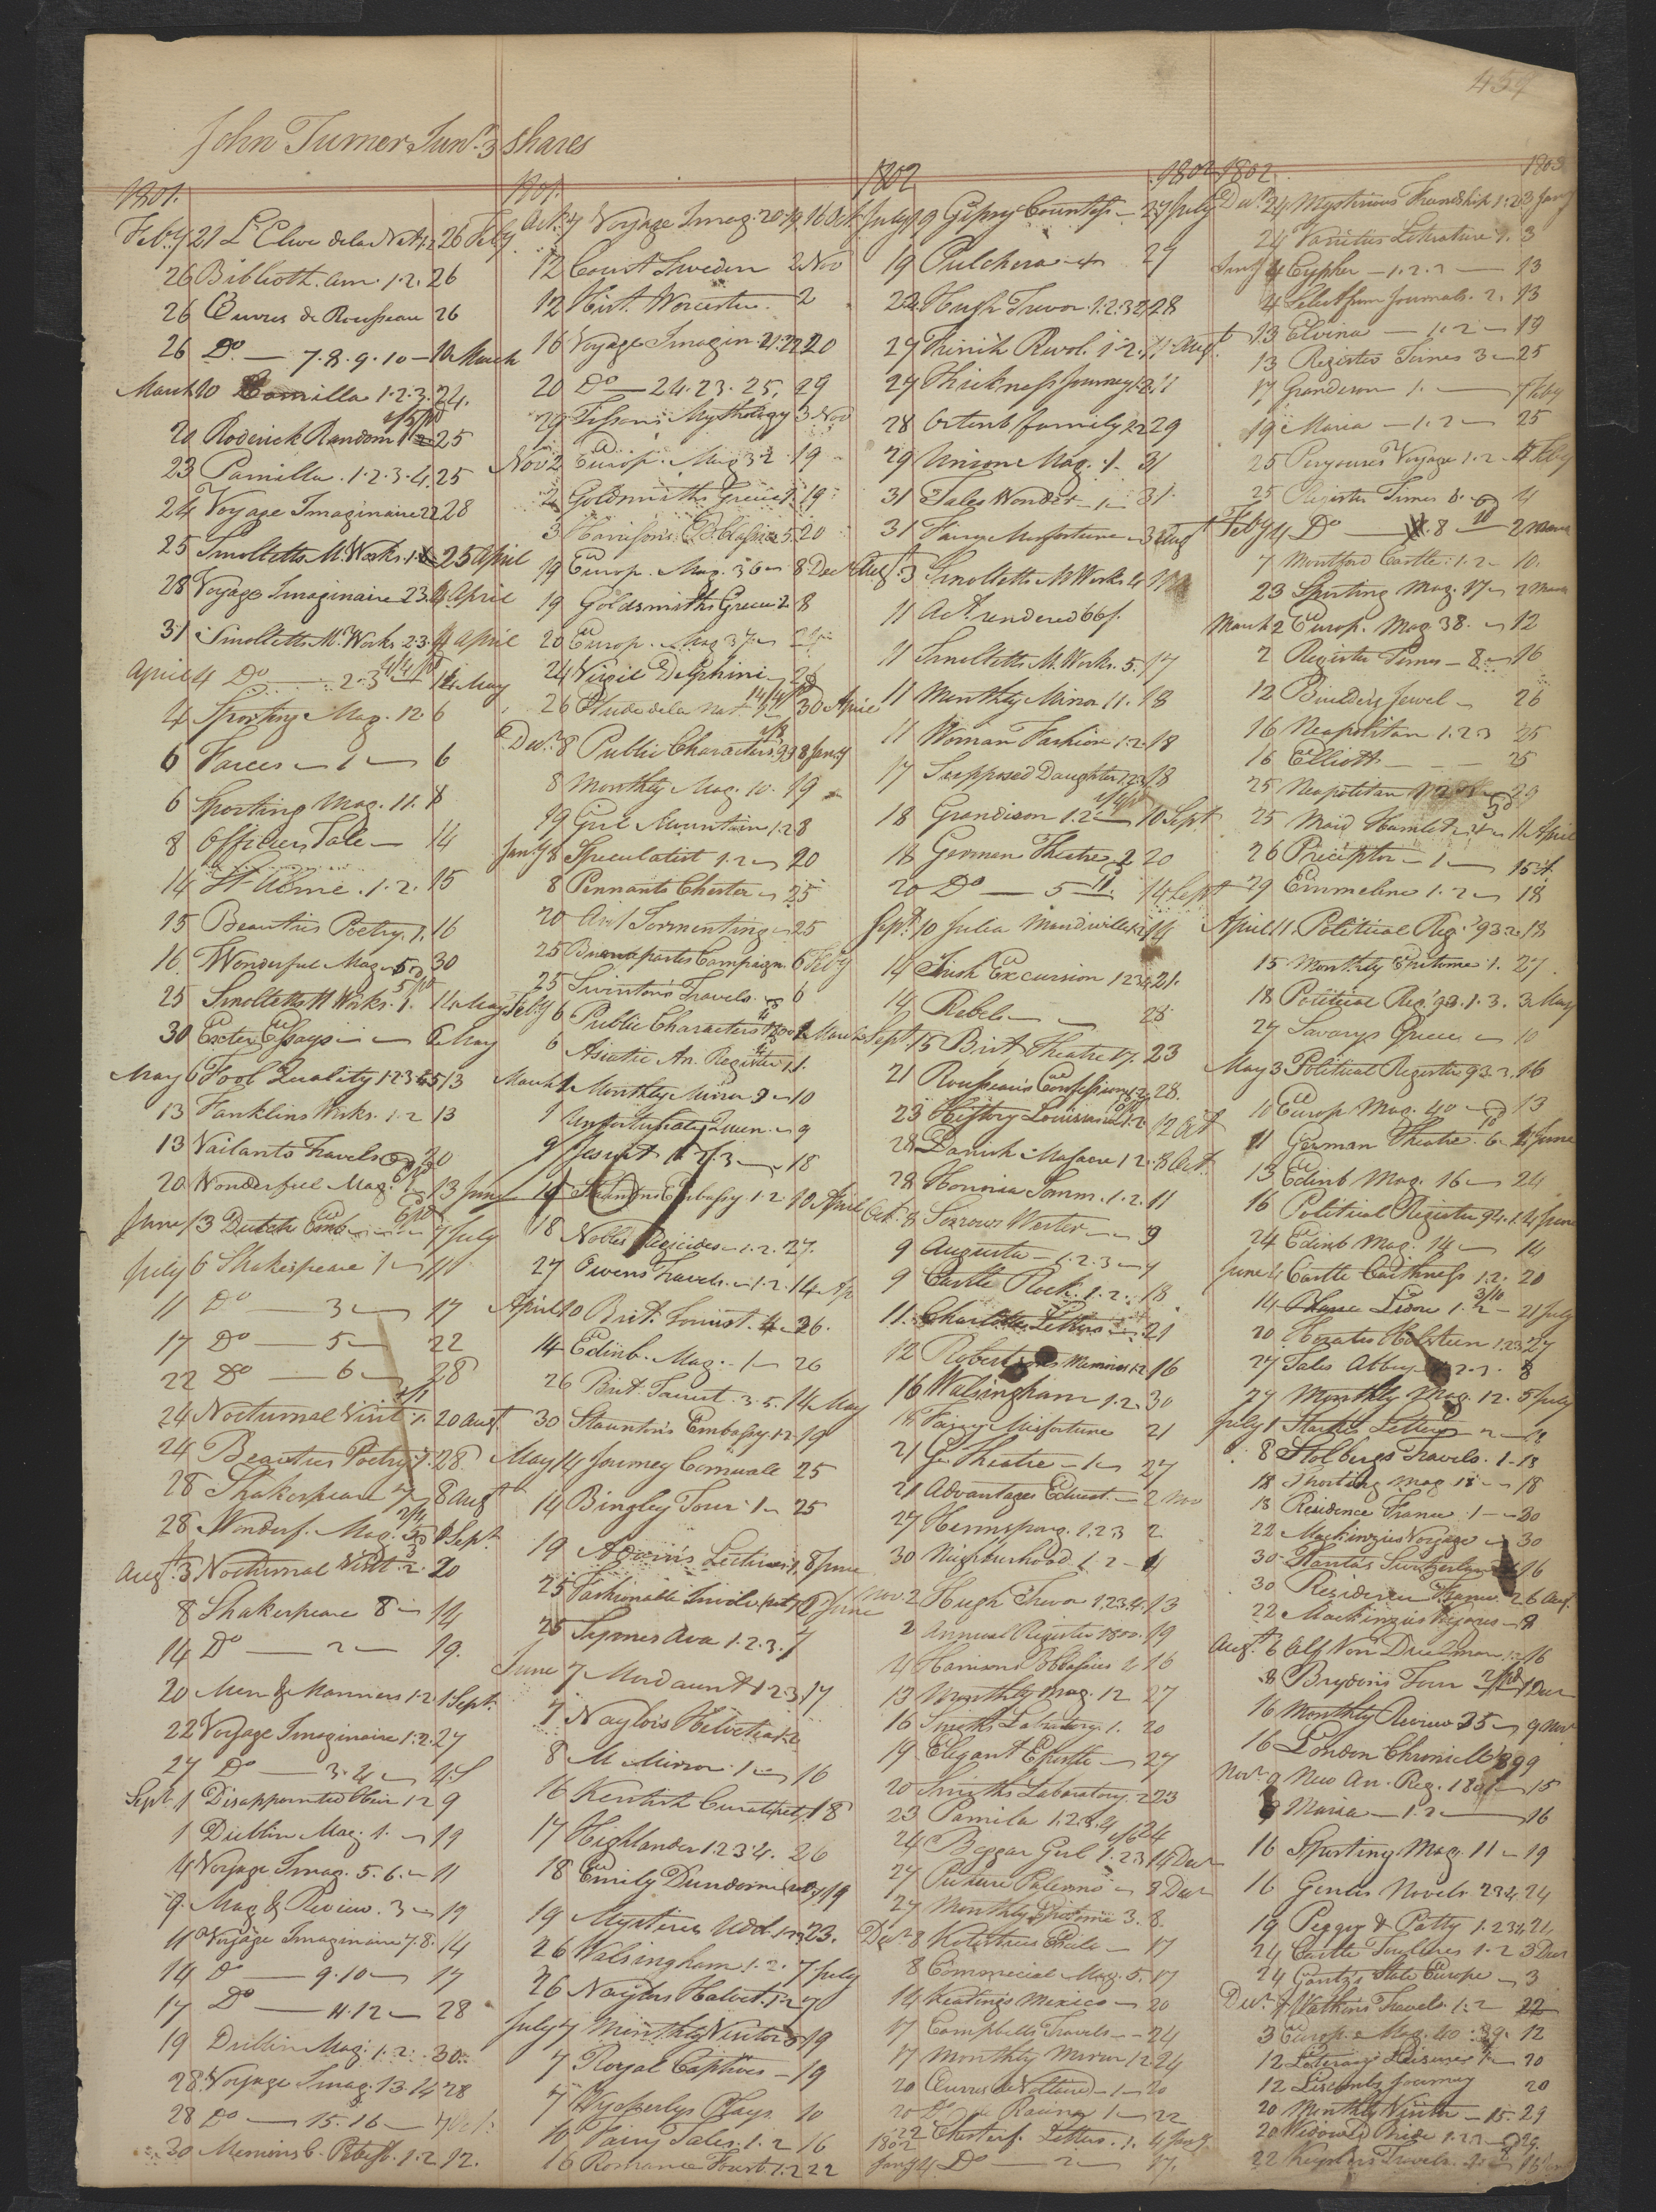 454
John Turner Junr. 3 shares
1801.
Feby 21 L'Elive de la Nat. 1.2 26 Feby
26 Biblioth. Am. 1.2. 26
26 Œuvres de Rousseau 26
26 Do. — 7.8.9.10 — 10 March
March 10 Camilla 1.2.3. 24.
20 Roderick Random 1 25
23 Pamilla. 1.2.3.4. 25
24 Voyage Imaginaire 22 28
25 Smolletts M. Works. 1. 25 April
28 Voyage Imaginaire 23. 4 April
31 Smolletts M. Works 2.3. 4 April
April 4 Do — 2.3 — 14 May
4 Sporting Mag. 12 6
6 Farces — 1 — 6
6 Sporting Mag. 11. 8
8 Officers Tale — 14
14 St. Alme. 1.2. 15
15 Beauties Poetry. 1. 16
16 Wonderful Mag. 5 30
25 Smolletts M Works. 1. 14 May
30 Exeter Essays — 6 May
May 6 Fool Quality 1.2.3.4.5 13
13 Franklins Works. 1.2 13
13 Vailants Travels 20
20 Wonderful Mag. 13 June
June 13 Dutch Emb. 7 July
July 6 Shakespeare 1 — 11
11 Do — 3 — 17
17 Do — 5 — 22
22 Do — 6 — 28
24 Nocturnal Visit 1. 20 Augt
24 Beauties Poetry. 1. 28
28 Shakespeare 7 — 8 Augt
28 Wonderf. Mag. 5 1 Sept.
Augt. 3 Nocturnal Visit. 2. 20
8 Shakespeare 8 — 14
14 Do — 2 — 19.
20 Men & Manners 1.2 1 Sept.
22 Voyage Imaginaire 1.2. 27
27 Do — 3.4 — 4 S
Sept. 1 Disappointed Heir 1.2 9
1 Dublin Mag. 1. — 19
4 Voyage Imag. 5.6. — 11
9 Mag & Review. 3 — 19
11 Voyage Imaginaire 7.8. 14
14 Do — 9.10 — 17
17 Do — 11.12 — 28
19 Dublin Mag. 1.2. 30
28 Voyage Imag. 13.14 28
28 Do — 15.16 — 7 Oct.
30 Memoirs 1.2 12.
1801.
Oct. 7 Voyage Imag. 20.19 16 Oct.
12 Court Sweden 2 Nov
12 Hist. Worcester. 2
16 Voyage Imagin. 21.22 20
20 Do — 24.23.25. 29
29 Mythology 3 Nov
Nov 2 Europ. Mag 32. 19
2 Goldsmiths Greece 1. 19
3 Harrisons B. Classics 5. 20
19 Europ. Mag. 36 — 8 Dec
19 Goldsmiths Greece 2 8
20 Europ. Mag 37 —
24 Virgil Delphini — 26
26 Etude de la Nat. 30 April
Decr. 8 Public Characters 8 Jany
8 Monthly Mag. 10. 19
19 Girl Mountain 1.2 8
Jany 8 Speculatist 1.2 — 20
8 Pennants Chester — 25
20 Art Tormenting — 25
25 Buonapartes Campaign. 6 Feby
25 Swintons Travels. — 6
Feby 6 Public Characters 1 March
6 Asiatic An. Register 1.
March 1 Monthly Mirror 9 — 10
1 Unfortunate Queen. — 9
9 Jesuit 1.2.3 — 18
10 Stauntons Embassy. 1.2 10 April
18 Nobles Regicides — 1.2. 27.
27 Owens Travels. — 1.2. 14 Ap
April 10 Brit. Tourist. 4 — 26.
14 Edinb. Mag. — 1 — 26
26 Brit. Tourist. 3.5. 14 May
30 Stauntons Embassy. 1.2 19
May 14 Journey Cornwall 25
14 Bingley Tour 1 — 25
19 Adam's Lectures 1. 8 June
25 Fashionable Involv. (not) 2 June
25 Symes Ava 1.2.3. 7
June 7 Mordaunt 1.2.3 17
7 Naylors Helvetia 1.2
8 M Mirror. 1 — 16
16 Kentish Curate (not) 18
17 Highlander 1.2.3.4. 26
18 Emily Dundorne 19
19 Mysteries Udol. 1.2.3 23.
26 Walsingham 1.2. 7 July
26 Naylors Helvet. 1.2 7
July 7 Monthly Visitor 5 19
7 Royal Captives — 19
7 Wycherlys Plays 10
10 Fairy Tales. 1.2 16
16 Romance Forest. 1.2 22
1802 1802
July 19 Gipsy Countess — 27 July
19 Pulchera — 4 27
22 Hugh Trevor 1.2.3 28
27 French Revol. 1.2. 11 Augt.
27 Thickness Journey 1.2. 11
28 Ortenb family 1.2 29
29 Union Mag. 1. 31
31 Tales Wonder — 1 — 31
31 Fairy Misfortune — 3 Augt
Augt. 3 Smolletts M Works 4
11 Act. rendered 66f.
11 Smolletts M. Works. 5. 17
11 Monthly Mirror 11. 18
11 Woman Fashion 1.2. 18
17 Supposed Daughter 1.2.3 18
18 Grandison 1.2. — 10 Sept.
18 German Theatre 2 20
20 Do — 5 — 14 Sept
Sept. 10 Julia Mandiville 1.2 14
14 Irish Excursion 1.2.3.4 21.
14 Rebel — 28
Sept 15 Brit Theatre 17. 23
21 Rousseau's Confessions 1.2. 28.
23 History Louisiana 1.2 12 Oct
28 Danish Massacre 1.2. 8 Oct.
28 Honoria Somm. 1.2. 11
Oct. 8 Sorrows Werter — 9
9 Augusta — 1.2.3 — 7
9 Castle Rock. 1.2. 18
11. Charlottes Letters — 21
12 Robertsons Memoirs 1.2 16
16 Walsingham 1.2. 30
18 Fairy Misfortune 21
21 Gn Theatre — 1 — 27
21 Advantages Educat. — 2 Nov
27 Hermsprong. 1.2.3 2
30 Neighbourhood 1.2 — 4
Nov. 2 Hugh Trevor 1.2.3.4. 13
2 Annual Register 1800. 19
4 Harrisons B. Classics 4 16
13 Monthly Mag. 12 27
16 Smiths Labratory. 1. 20
19 Elegant Epistle — 27
20 Smiths Laboratory. 2 23
23 Pamila 1.2.3.4 24
24 Beggar Girl 1.2.3 14 Decr
27 Picture Palermo — 8 Decr
27 Monthly Epitome 3. 8.
Decr 8 Kotzebues Exile — 17
8 Commercial Mag. 5. 17
14 Keatings Mexico — 20
17 Campbells Travels — 24
17 Monthly Mirror 12 24
20 Œuvres de Voltaire — 1 — 20
20 Do de Racine 1 — 22
22 Chesterf. Letters. 1. 4 Jany
1802
Jany 4 Do — 2 — 17.
1802. 1803
Decr. 24 Mysterious Friendship 1.2 3 Jany
24 Varieties Literature 1. 3
Jany 4 Cypher — 1.2.3 — 13
4 Select from Journals. 2. 13
13 Elvina — 1.2 — 19
13 Register Times 3 — 25
17 Grandison 1. — 7 Feby
19 Maria — 1.2 — 25
25 Perouses Voyage 1.2 — 4 Feby
25 Register Times 8. — 4
Feby 4 Do — 8 — 2 March
7 Montford Castle. 1.2 — 10.
23 Sporting Mag. 17 — 2 March
March 2 Europ. Mag 38. — 12
2 Register Times — 8 — 16
12 Builders Jewel — 26
16 Neapolitan 1.2.3 25
16 Elliott — 25
25 Neapolitan 29
25 Maid Hamlet — 11 April
26 Preceptor — 1 — 15
29 Emmeline 1.2 — 18
April 11. Political Reg. '93. 2. 18
15 Monthly Epitome 1. 27
18 Political Reg. 93. 1.3. 3 May
27 Savarys Greece — 10
May 3 Political Register 93.2. 16
10 Europ Mag. 40 — 13
11 German Theatre. 6. 4 June
13 Edinb Mag. 16 — 24
16 Political Register 94.1. 4 June
24 Edinb Mag. 14 — 14
June 4 Castle Caithness 1.2. 20
14 1.2 — 21 July
20 Horatio Holstein 1.2.3 27
27 Tales Abbey 1.2.3. 8
27 Monthly Mag. 12. 5 July
July 1 Starkes Letters 2 — 18
8 Stolbergs Travels. 1 — 13
12 Sporting Mag 18 — 18
18 Residence France. 1 — 30
22 Mackinzies Voyage — 30
30 Plantas Switzerland 16
30 Residence France. 26 Aug.
22 Mackinzies Voyages — 9
Augt. 6 Alf Von Duelman 1.2 16
8 Brydons Tour 1 Decr
16 Monthly Review 35 — 9 Nov
16 London Chronicle 99 9
Novr. 9 New An. Reg. 1801 — 15
9 Maria — 1.2 — 16
16 Sporting Mag. 11 — 19
16 Genlis Novels. 2.3.4 24
19 Peggy & Patty 1.2.3.4. 21.
24 Castle Toulines 1.2 3 Decr
24 Gentz's State Europe — 3
Decr. 1 Watkins Travels. 1.2 22
3 Europ. Mag. 40. 39. 12
12 Literary Leisures 1 — 20
12 Liscombs Journey 20
20 Monthly Visitor — 15. 29
20 Widowed Bride 1.2.3 — 29.
22 Keyslers Travels.